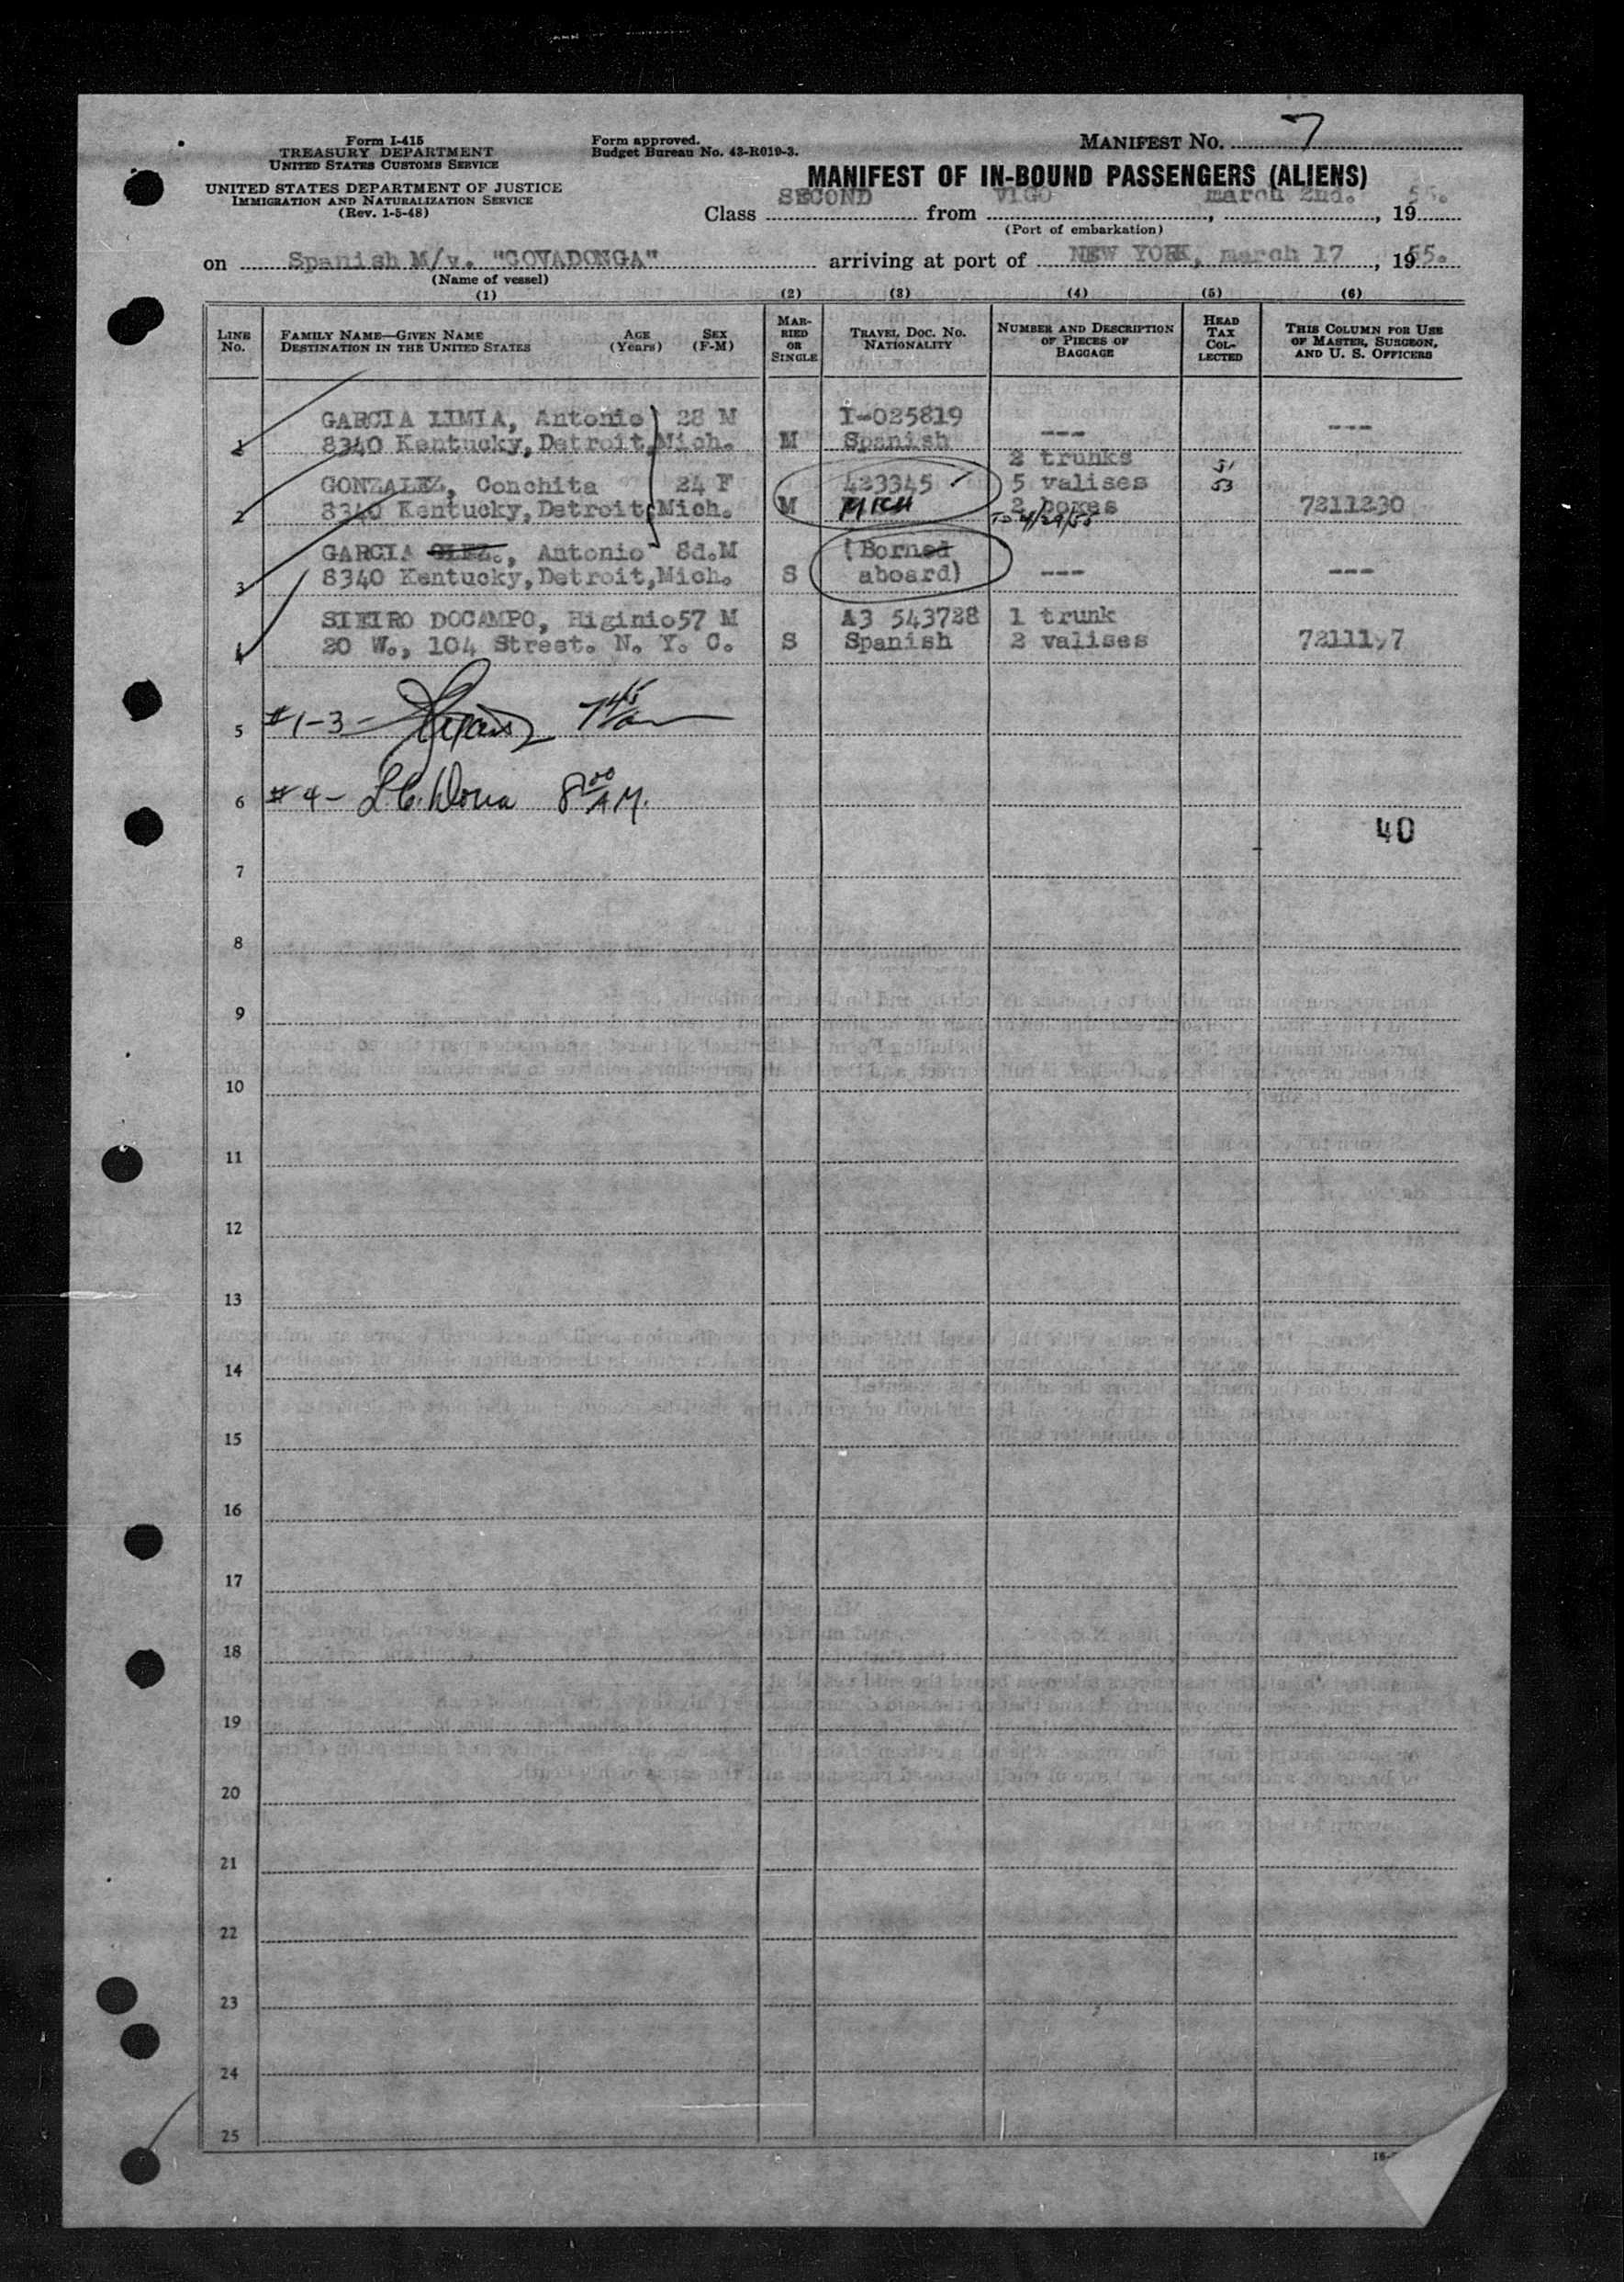 Form I-415
TREASURY DEPARTMENT
UNITED STATES CUSTOMS SERVICE
UNITED STATES DEPARTMENT OF JUSTICE
IMMIGRATION AND NATURALIZATION SERVICE
(Rev. 1-5-48)
Form approved.
Budget Bureau No. 43-R019-3.
MANIFEST NO. 7
MANIFEST OF IN-BOUND PASSENGERS (ALIENS)
Class SECOND from VIGO, march 2nd., 1955.
(Port of embarkation)
on Spanish M/v. "COVADONGA" arriving at port of NEW YORK, march 17, 1955.
(Name of vessel)
(1) (2) (3) (4) (5) (6)
LINE No. FAMILY NAME—GIVEN NAME DESTINATION IN THE UNITED STATES AGE (Years) SEX (F-M) MARRIED OR SINGLE TRAVEL DOC. NO. NATIONALITY NUMBER AND DESCRIPTION OF PIECES OF BAGGAGE HEAD TAX COLLECTED THIS COLUMN FOR USE OF MASTER, SURGEON, AND U. S. OFFICERS
GARCIA LIMIA, Antonio 28 M I-025819
1 8340 Kentucky, Detroit, Mich. M Spanish --- ---
2 trunks
GONZALEZ, Conchita 24 F 423345 5 valises 51 53
2 8340 Kentucky, Detroit, Mich. M MICH 2 boxes 7211230
TO 4/29/55
GARCIA GLEZ., Antonio 8d. M (Borned
3 8340 Kentucky, Detroit, Mich. S aboard) --- ---
SIEIRO DOCAMPO, Higinio 57 M A3 543728 1 trunk
4 20 W., 104 Street. N. Y. C. S Spanish 2 valises 7211197
5 #1-3- 7 45
6 #4- 8 00 A.M.
40
7
8
9
10
11
12
13
14
15
16
17
18
19
20
21
22
23
24
25